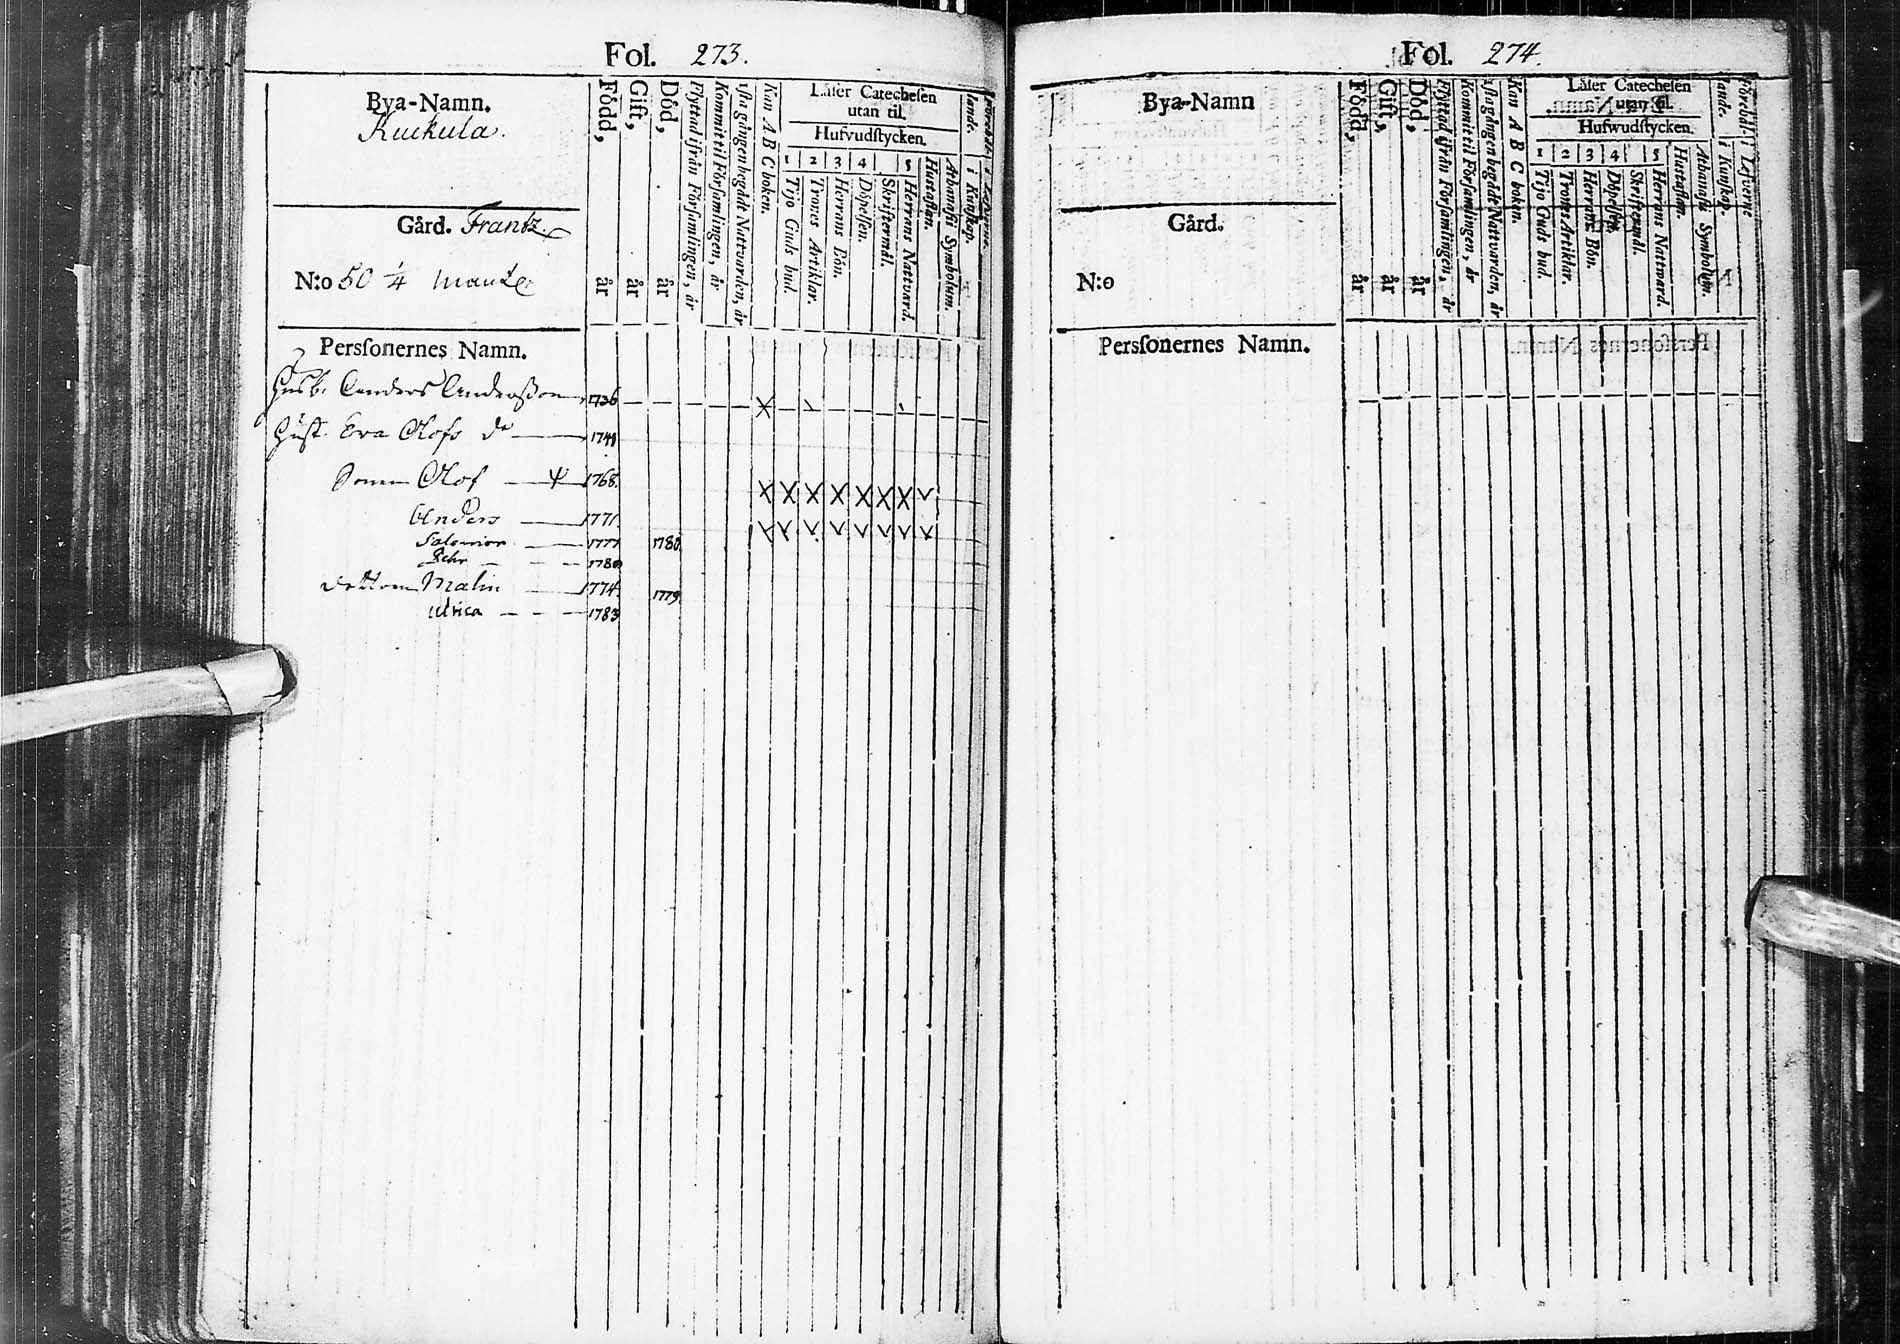 Fol. 273.
Bya-Namn.
Kuckula.
Gård. Frantz.
N:o 50 1/4 mantal
Född, år
Gift, år
Död, år
Flyttad ifrån Församlingen, år
Kommit til Församlingen, år
1sta gången begådt Nattvarden, år
Kan A B C boken.
Låser Catechesen
utan til.
Hufvudstycken.
1 2 3 4 5
Tijo Guds bud.
Trones Artiklar.
Herrans Bön.
Döpelsen.
Skriftermål.
Herrans Nattvard.
Hustaflan.
Athanasii Symbolum.
i Kunskap.
Perssonernes Namn.
Husb. Anders Andersson 1736
Hust. Eva Olofs dr 1740
Sonen Olof 1768.
Anders 1771.
Salomon 1777 1780.
Pehr 1780
Dottren Malin 1774. 1779.
Ulrica 1783
Fol. 274.
Bya-Namn
Gård.
N:o
Född, år
Gift, år
Död, år
Flyttad ifrån Församlingen, år
Kommit til Församlingen, år
1sta gången begådt Nattvarden, år
Kan A B C boken.
Låser Catechesen
utan til.
Hufwudstycken.
1 2 3 4 5
Tijo Guds bud.
Trones Artiklar.
Herrans Bön.
Döpelsen.
Skriftermål.
Herrans Nattvard.
Hustaflan.
Athanasii Symbolum.
i Kunskap.
i Lefverne
Perssonernes Namn.